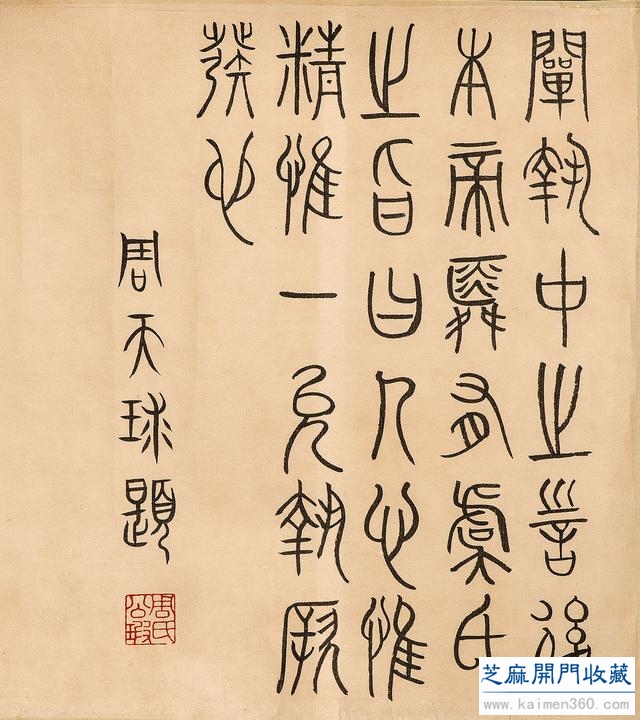 闡執中之後
本帝舜有虞氏
之旨曰人心惟
精惟一允執厥
周天球題
周氏
公瑕
芝麻開門收藏
www.kaimen360.com